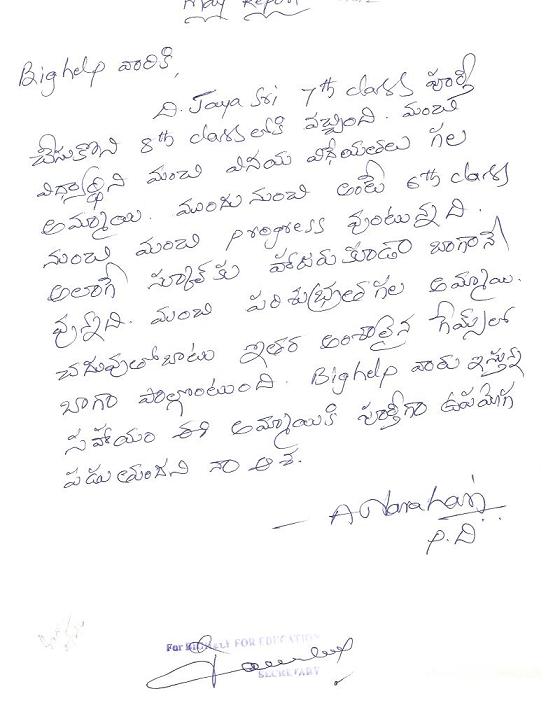 May Report
Bighelp వారికి,
ది. Jaya Sri 7th class పూర్తి
చేసుకొని 8th class లోకి వచ్చింది. మంచి
విద్యార్థిని మంచి వినయ విధేయతలు గల
అమ్మాయి. ముందునుంచి అంటే 6th class
నుంచి మంచి progress వుంటున్నది.
అలాగే స్కూల్ కు హాజరుకూడా బాగానే
వున్నది. మంచి పరిశుభ్రత గల అమ్మాయి.
చదువుతోబాటు ఇతర అంశాలైన గేమ్స్ లో
బాగా పాల్గొంటుంది. Bighelp వారు ఇస్తున్న
సహాయం ఈ అమ్మాయికి పూర్తిగా ఉపయోగ
పడుతుందని నా ఆశ.
— A Narahari
P.D
For BIGHELP FOR EDUCATION
SECRETARY